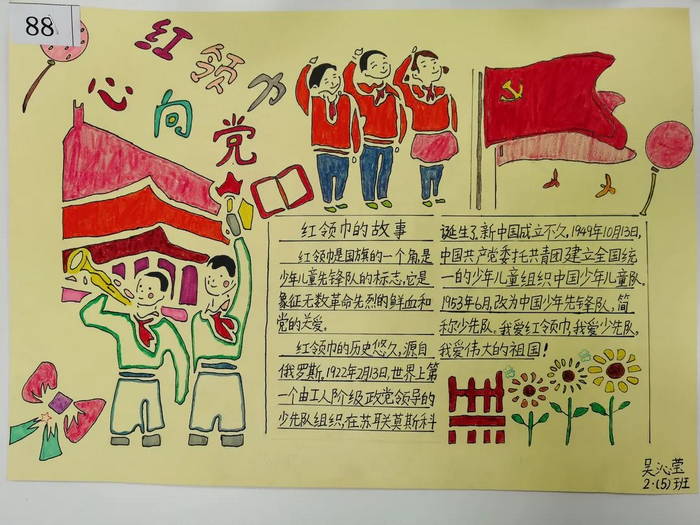 88
红领巾
心向党
红领巾的故事
红领巾是国旗的一个角,是
少年儿童先锋队的标志,它是
象征无数革命先烈的鲜血和
党的关爱。
红领巾的历史悠久,源自
俄罗斯,1922年2月13日,世界上第
一个由工人阶级政党领导的
少先队组织,在苏联莫斯科
诞生了,新中国成立不久,1949年10月13日,
中国共产党委托共青团建立全国统
一的少年儿童组织中国少年儿童队。
1953年6月,改为中国少年先锋队,简
称少先队。我爱红领巾,我爱少先队,
我爱伟大的祖国!
吴沁莹
2·(5)班